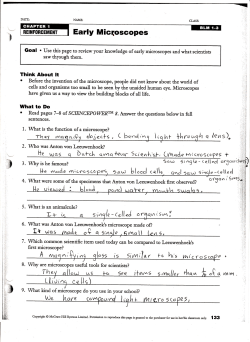 DATE: NAME: CLASS:
CHAPTER 1
REINFORCEMENT
Early Microscopes
BLM 1-3
Goal • Use this page to review your knowledge of early microscopes and what scientists
saw through them.
Think About It
• Before the invention of the microscope, people did not know about the world of
cells and organisms too small to be seen by the unaided human eye. Microscopes
have given us a way to view the building blocks of all life.
What to Do
• Read pages 7-8 of SCIENCEPOWER™ 8. Answer the questions below in full
sentences.
1. What is the function of a microscope?
They magnify objects, (bending light through a lens).
2. Who was Anton van Leeuwenhoek?
He was a Dutch amateur Scientist. (made microscopes +
saw single-celled organisms)
3. Why is he famous?
He made microscopes, saw blood cells, and saw single-celled
organisms.
4. What were some of the specimens that Anton van Leeuwenhoek first observed?
He viewed: blood, pond water, mouth swabs.
5. What is an animalcule?
It is a single-celled organism.
6. What was Anton van Leeuwenhoek's microscope made of?
It was made of a single, small lens.
7. Which common scientific item used today can be compared to Leeuwenhoek's
first microscope?
A magnifying glass is similar to his microscope.
8. Why are microscopes useful tools for scientists?
They allow us to see items smaller than of a mm.
(living cells)
9. What kind of microscope do you use in your school?
We have compound light microscopes.
133